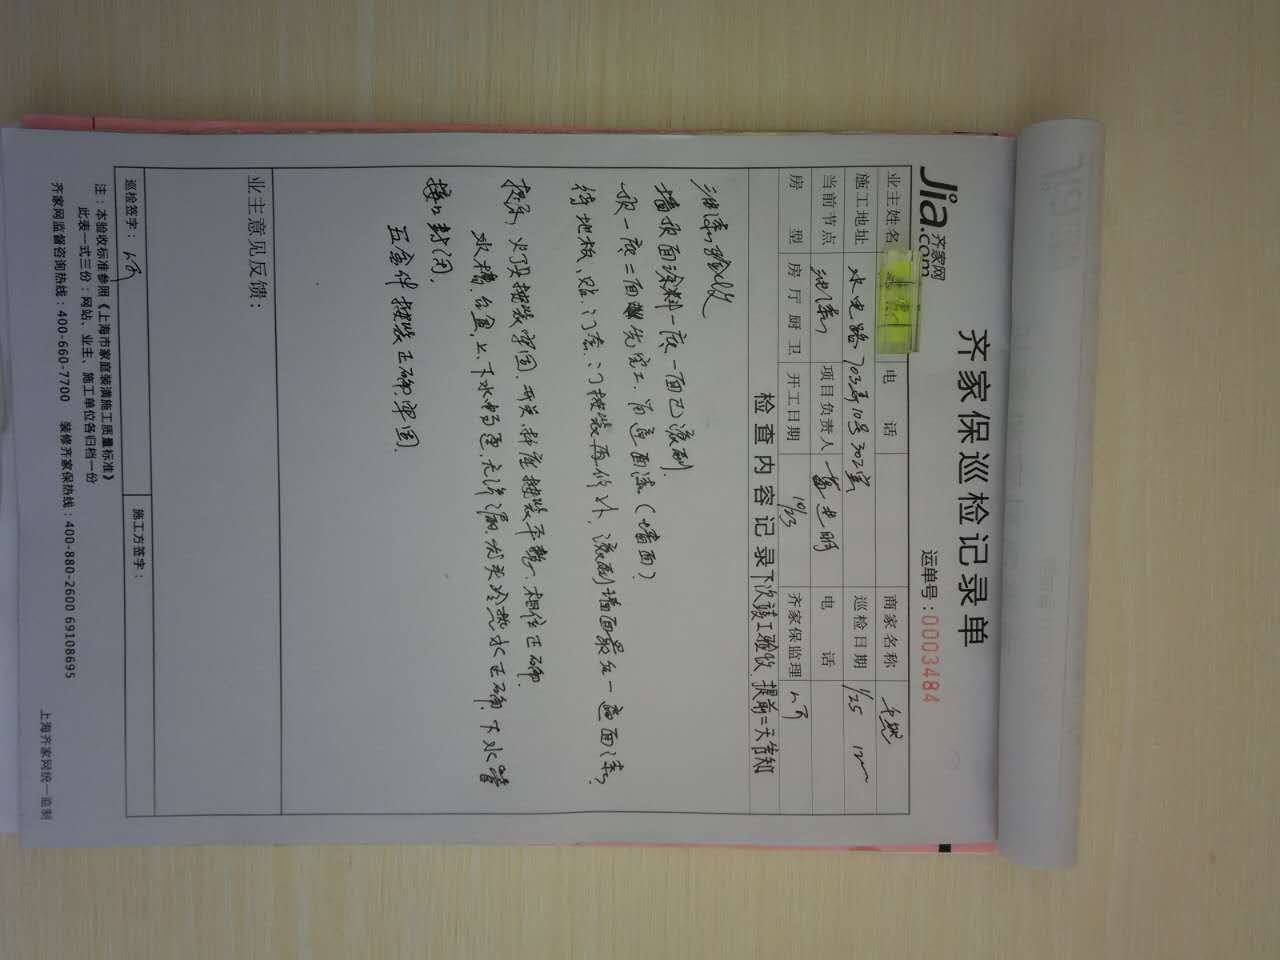 Jia.com 齐家网
齐家保巡检记录单
运单号：0003484
业主姓名 电 话 商家名称
施工地址 水电路703弄10号302室 巡检日期 1/25
当前节点 油漆 项目负责人 电 话
房 型 房 厅 厨 卫 开工日期 10/23 齐家保监理
检查内容记录 下次竣工验收，提前二天告知
油漆验收
墙顶面涂料一底一面已滚刷
顶一底二面 先完工，留一遍面漆（墙面）
待地板、 门套、门按装再修补，滚刷墙面最后一遍面漆
提示，灯具按装牢固，开关、插座按装平整，相位正确
水槽、台盆，上、下水畅通，无渗漏，龙头冷热水正确，下水管
接口封闭，
五金件按装正确牢固．
业主意见反馈：
巡检签字： 施工方签字：
注：本验收标准参照《上海市家庭装潢施工质量标准》
此表一式三份：网站、业主、施工单位各归档一份
齐家网监督咨询热线：400-660-7700 装修齐家保热线：400-880-2600 69108695
上海齐家网统一监制